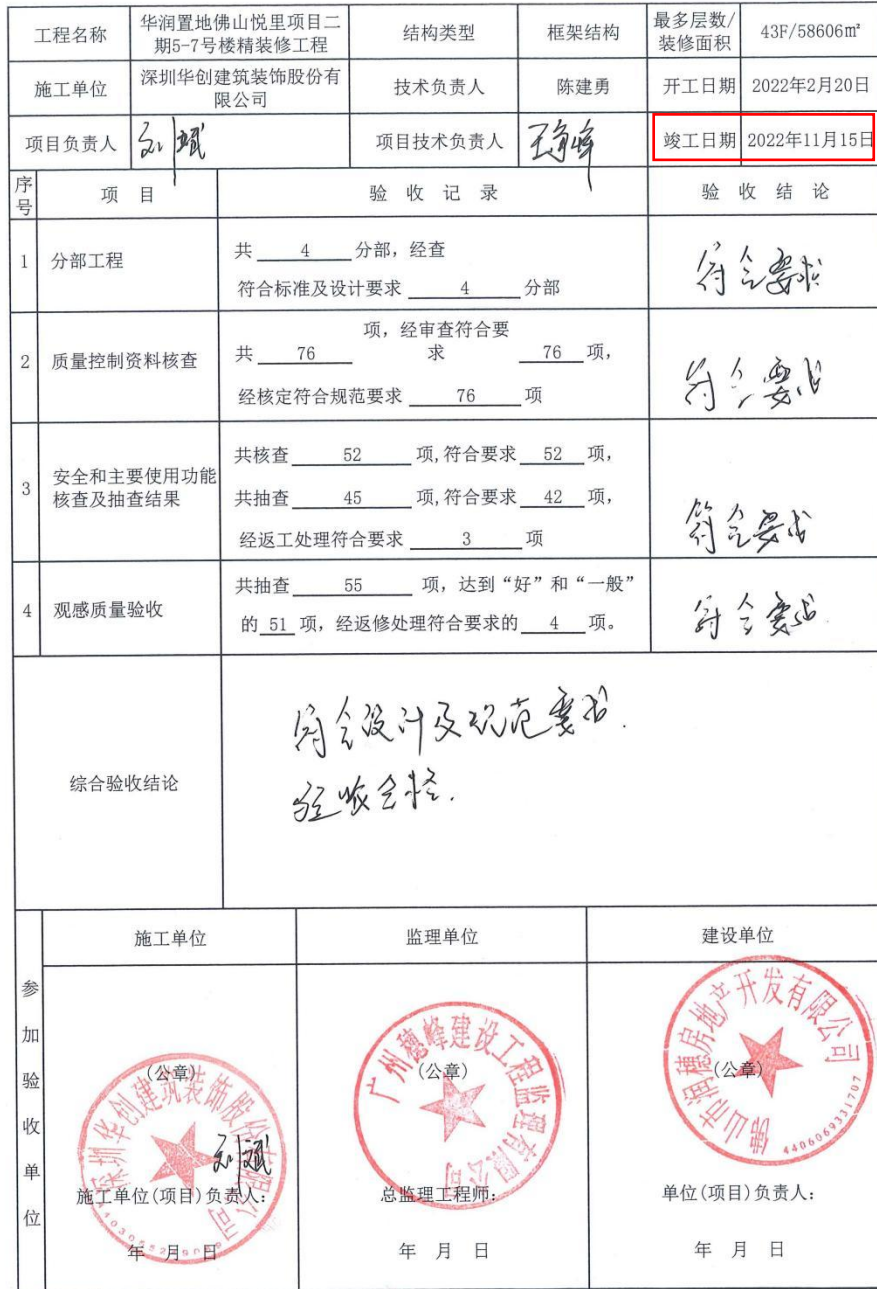 工程名称
华润置地佛山悦里项目二
期5-7号楼精装修工程
结构类型
框架结构
最多层数/
装修面积
43F/58606㎡
施工单位
深圳华创建筑装饰股份有
限公司
技术负责人
陈建勇
开工日期
2022年2月20日
项目负责人
刘斌
项目技术负责人
竣工日期
2022年11月15日
序
号
项 目
验 收 记 录
验 收 结 论
1
分部工程
共 4 分部，经查
符合标准及设计要求 4 分部
符合要求
2
质量控制资料核查
项，经审查符合要
共 76 求 76 项，
经核定符合规范要求 76 项
符合要求
3
安全和主要使用功能
核查及抽查结果
共核查 52 项,符合要求 52 项，
共抽查 45 项,符合要求 42 项，
经返工处理符合要求 3 项
符合要求
4
观感质量验收
共抽查 55 项，达到“好”和“一般”
的 51 项，经返修处理符合要求的 4 项。
符合要求
综合验收结论
符合设计及规范要求.
验收合格.
参
加
验
收
单
位
施工单位
监理单位
建设单位
(公章)
深圳华创建筑装饰股份有限公司
刘斌
施工单位(项目)负责人:
年 月 日
(公章)
广州穗峰建设工程监理有限公司
总监理工程师:
年 月 日
(公章)
佛山市润穗房地产开发有限公司
4406069331707
单位(项目)负责人:
年 月 日